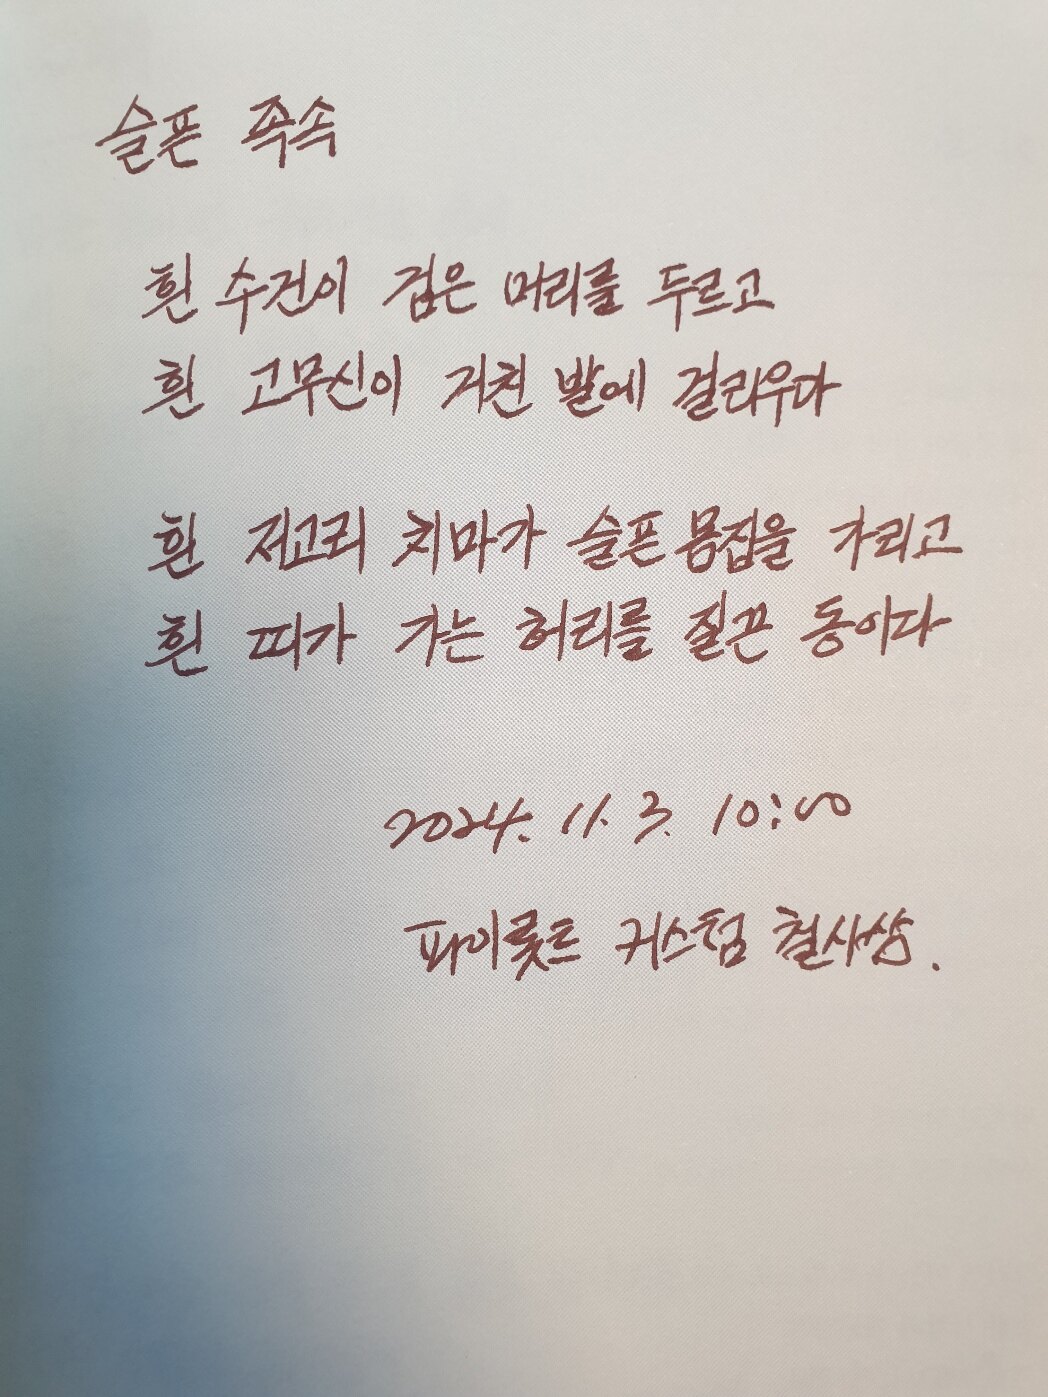 슬픈 족속
흰 수건이 검은 머리를 두르고
흰 고무신이 거친 발에 걸리우다
흰 저고리 치마가 슬픈 몸집을 가리고
흰 띠가 가는 허리를 질끈 동이다
2024. 11. 3. 10:00
파이롯트 커스텀 철사상.